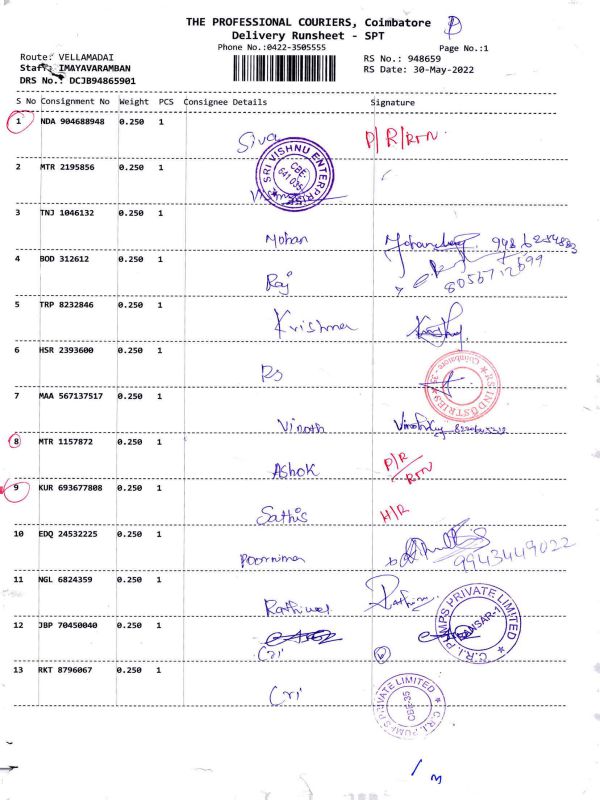 THE PROFESSIONAL COURIERS, Coimbatore
Delivery Runsheet - SPT
Phone No.:0422-3505555
Page No.:1
Route: VELLAMADAI
RS No.: 948659
Staff: IMAYAVARAMBAN
RS Date: 30-May-2022
DRS No.: DCJB94865901
S No Consignment No Weight PCS Consignee Details Signature
1 NDA 904688948 0.250 1
Siva P/R/RTN
SRI VISHNU ENTERPRISES
CBE-
641 035
2 MTR 2195856 0.250 1
3 TNJ 1046132 0.250 1
Mohan
4 BOD 312612 0.250 1
Raj 8056712699
5 TRP 8232846 0.250 1
Krishna
6 HSR 2393600 0.250 1
Rs
RS INDUSTRIES Coimbatore - 35
7 MAA 567137517 0.250 1
Vinoth
8 MTR 1157872 0.250 1
Ashok P/R
RTN
9 KUR 693677808 0.250 1
Sathis H/R
10 EDQ 24532225 0.250 1
Poornima 9943449022
11 NGL 6824359 0.250 1
Rathivel
12 JBP 70450040 0.250 1
Cri
C.R.I. PUMPS PRIVATE LIMITED
13 RKT 8796067 0.250 1
Cri
C.R.I. PUMPS PRIVATE LIMITED
CBE-35